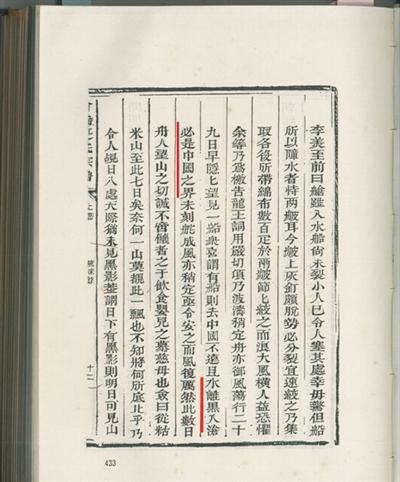 李美至前曰艙雖入水船尚未裂小人已令人塞其處幸毋驚但船
所以障水者特兩耳今上灰釘頗脫勢必分裂宜速之乃集
取各役所帶綿布數百疋於兩匕之而浪大風橫人益恐懼
余等乃為檄告龍王詞用嚴切頃乃波濤稍定舟亦御風蕩行二十
九日早隱匕望見一船衆喜謂有船則去中國不遠且水離黑入滄
必是中國之界未刻舵成風亦稍定亟令安之而風復厲然此數日
舟人望山之切誠不啻饑者之于飲食嬰兒之慕慈母也僉曰從粘
米山至此七日矣奈何一山莫覩此一飄也不知將何所底止乎乃
令人覘日入處天際猶未見黑影蓋謂日下有黑影則明日可見山
上卷
琉球錄
十二
433